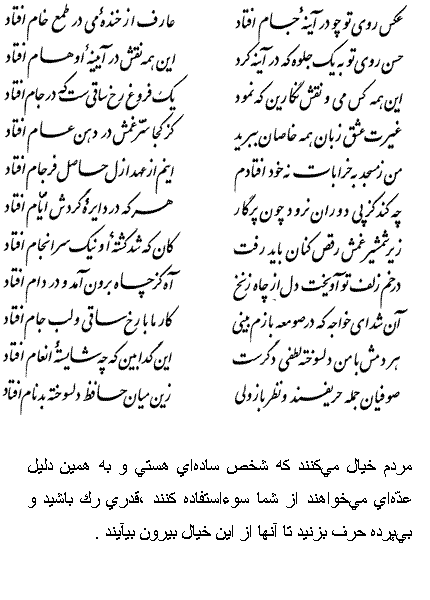 عکس روی تو چو در آینهٔ جام افتاد عارف از خندهٔ می در طمع خام افتاد
حسن روی تو به یک جلوه که در آینه کرد این همه نقش در آیینهٔ اوهام افتاد
این همه عکس می و نقش نگارین که نمود یک فروغ رخ ساقی‌ست که در جام افتاد
غیرت عشق زبان همه خاصان ببرید کز کجا سرّ غمش در دهن عام افتاد
من ز مسجد به خرابات نه خود افتادم اینم از عهد ازل حاصل فرجام افتاد
چه کند کز پی دوران نرود چون پرگار هر که در دایرهٔ گردش ایّام افتاد
زیر شمشیر غمش رقص کنان باید رفت کان که شد کشتهٔ او نیک سرانجام افتاد
در خم زلف تو آویخت دل از چاه زنخ آه کز چاه برون آمد و در دام افتاد
آن شد ای خواجه که در صومعه بازم بینی کار ما با رخ ساقی و لب جام افتاد
هر دمش با من دلسوخته لطفی دگرست این گدا بین که چه شایستهٔ انعام افتاد
صوفیان جمله حریفند و نظرباز ولی زین میان حافظ دلسوخته بدنام افتاد
مردم خيال مي‌كنند كه شخص ساده‌اي هستي و به همين دليل
عدّه‌اي مي‌خواهند از شما سوءاستفاده كنند ،قدري رك باشيد و
بي‌پرده حرف بزنيد تا آنها از اين خيال بيرون بيآيند .